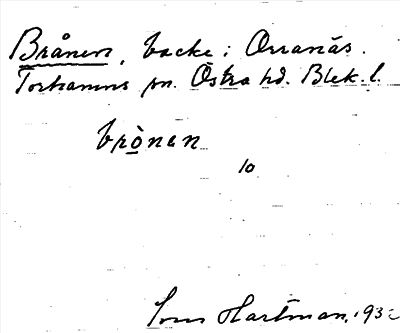 Brånen, backe i Orranäs.
Torhamns sn. Östra hd. Blek. l.
brònen
10
Hartman, 193